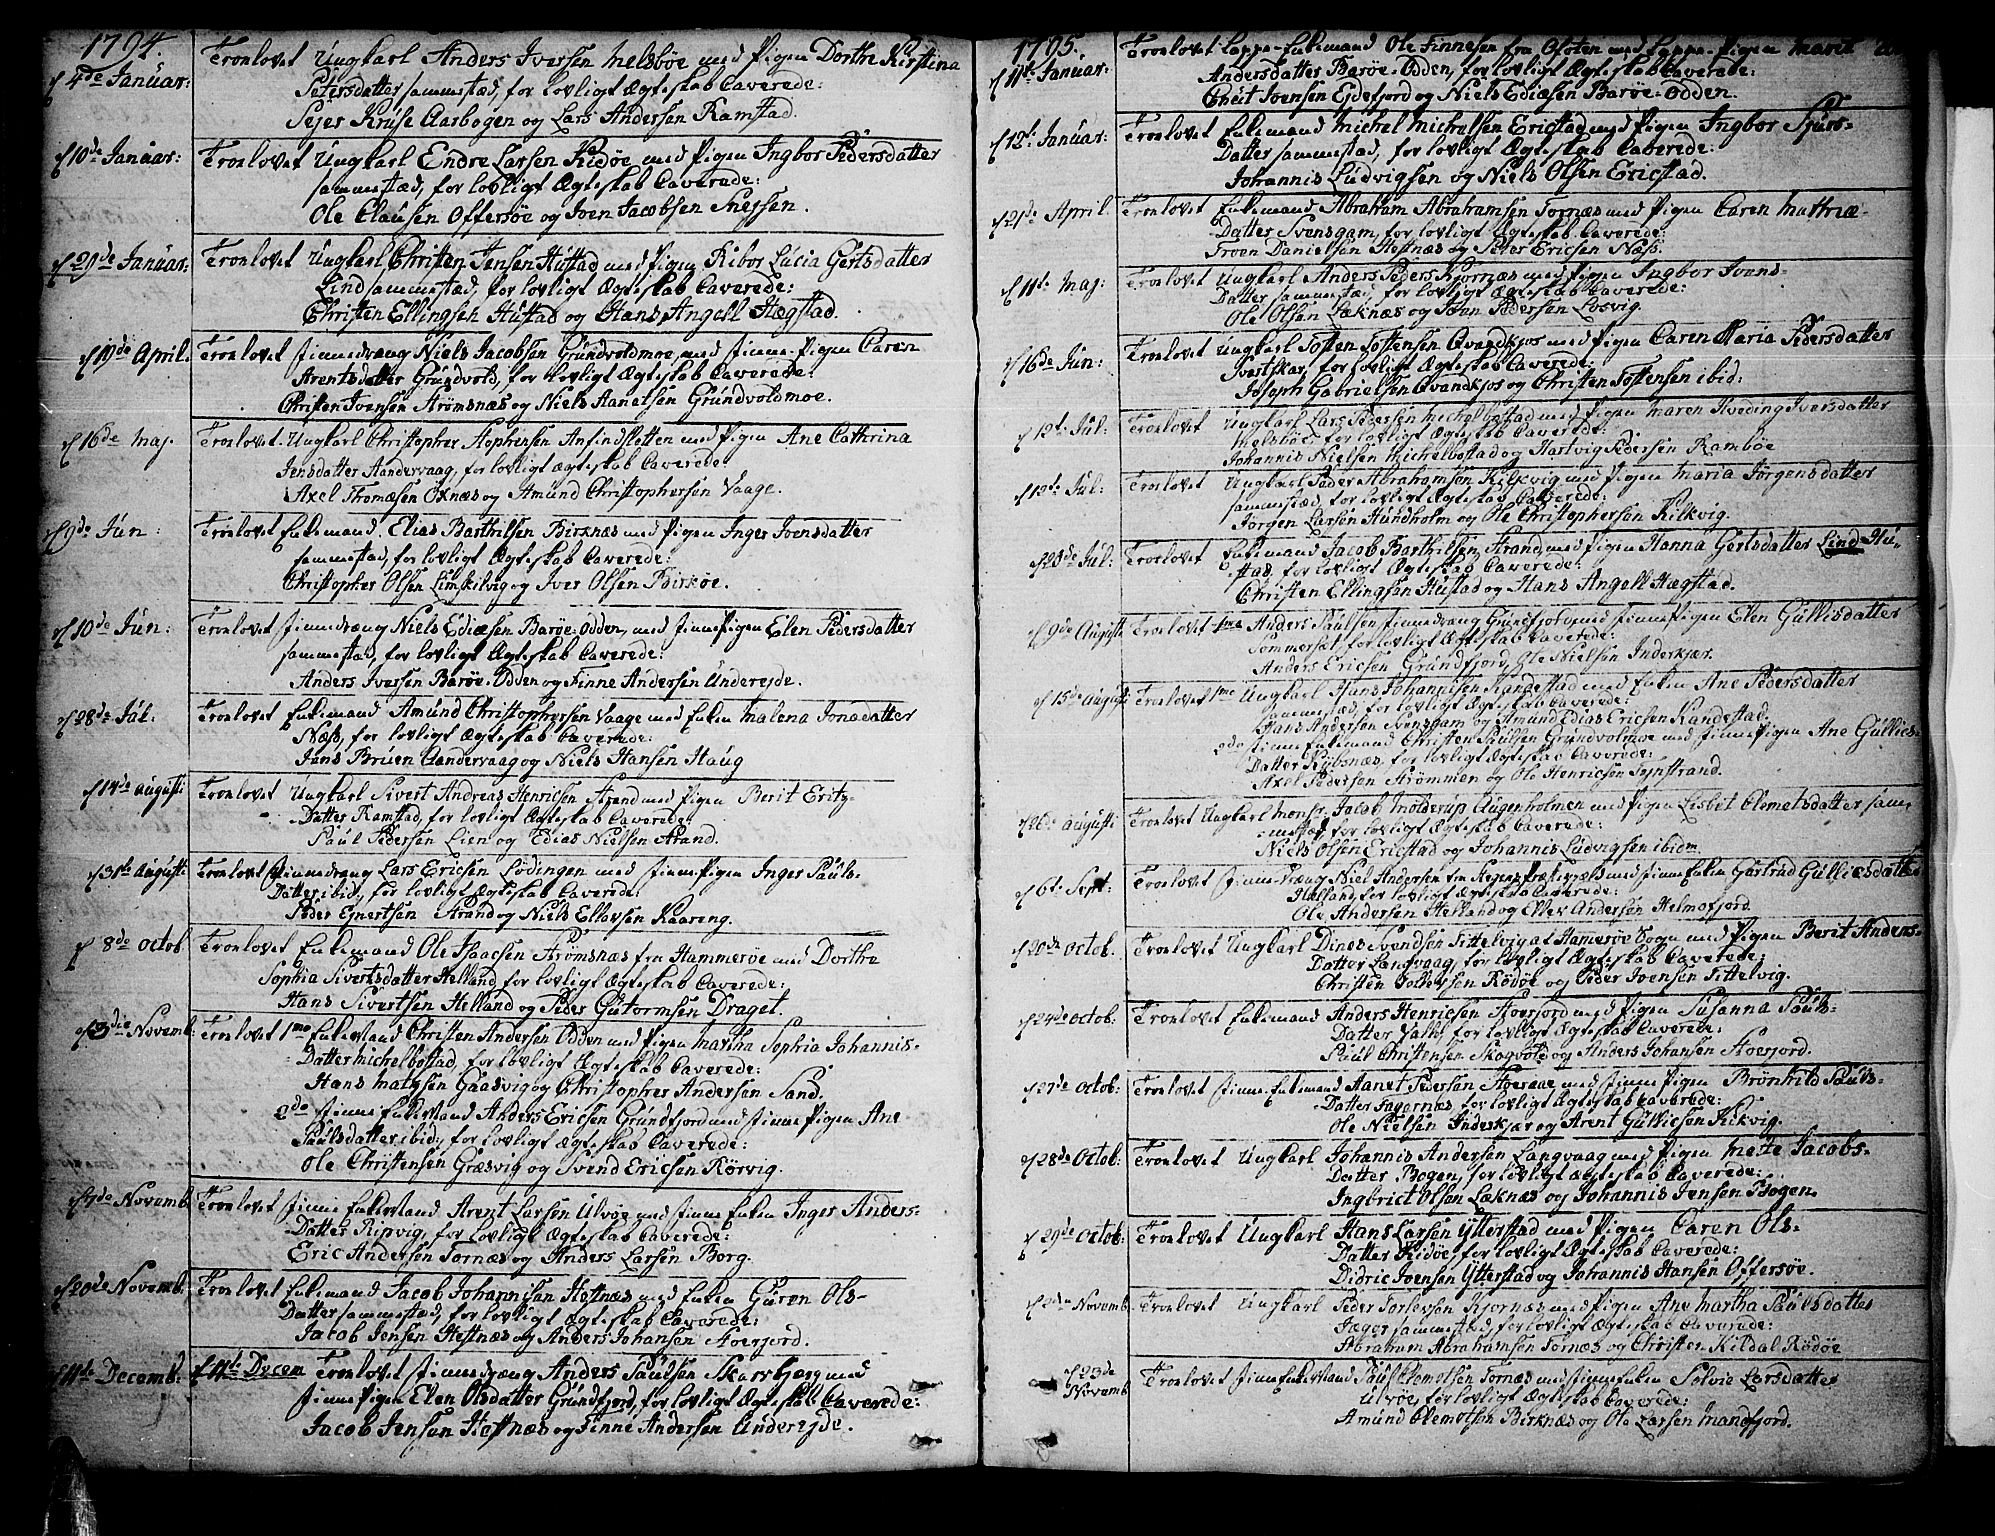 1794.
d 4de Januar: Trolovet Ungkarl Anders Iversen Melsbøe med Pigen Dorthe Kirstina
Petersdatter sammestæd, for lovligt Ægteskab Caverede:
Pejer Kruse Aarbogen og Lars Andersen Ramstad.
d 10de Januar: Trolovet Ungkarl Endre Larsen Ridøe med Pigen Ingbor Pedersdatter
sammestæd, for lovligt Ægteskab Caverede:
Ole Clausen Offersøe og Iven Jacobsen Snessen.
d 29de Januar: Trolovet Ungkarl Christen Jensen Hustad med Pigen Ribor Lucia Gertsdatter
Lind sammestæd, for lovligt Ægteskab Caverede:
Christen Ellingsen Hustad og Hans Angell Hægstad.
d 19de April. Trolovet finnedræng Niels Jacobsen Grundvoldmoe, med finne-Pigen Caren
Arentsdatter Grundvold, for lovligt Ægteskab Caverede:
Christen Ivensen Strømsnæs og Niels Aanetsen Grundvoldmoe.
d 16de Maj. Trolovet Ungkarl Christopher Stephensen Ansindsletten med Pigen Ane Cathrina
Jensdatter Aandervaag, for lovligt Ægteskab Caverede:
Axel Thomæsen Oxnæs og Amund Christophersen Vaage.
d 9de Jun: Trolovet Enkemand Elias Barthelsen Birknæs med Pigen Inger Ivensdatter
sammestad, for lovligt Ægteskab Caverede:
Christopher Olsen Limkilvig og Iver Olsen Birkøe.
d 10de Jun: Trolovet finnedræng Niels Ediæsen Barøe-Odden, med finnePigen Elen Pedersdatter
sammestad, for lovligt Ægteskab Caverede:
Anders Iversen Barøe-Odden og Finne Andersen Underejde.
d 28de Jul: Trolovet Enkemand Amund Christophersen Vaage med Enken Malena Jonædatter
Næss, for lovligt Ægteskab Caverede:
Jens Bruen Aandervaag og Niels Hansen Haug
d 14de Augusti Trolovet Ungkarl Sivert Andreas Henricsen Strand med Pigen Berit Erity-
Datter Ramstad, for lovligt Ægteskab Caverede:
Paul Pedersen Lien og Edias Nielsen Strand.
d 31te Augusti Trolovet finnedræng Lars Ericsen Lødingen med finne-Pigen Inger Pauls-
Datter ibid, for lovligt Ægteskab Caverede:
Peder Ejnertsen Strand og Niels Ellevsen Kaaring.
d 8de Octob Trolovet Enkemand Ole Isaacsen Strømsnæs fra Hammerøe med Dorthe
Sophia Sivertsdatter Helland, for lovligt Ægteskab Caverede:
Hans Sivertsen Helland og Peder Gutormsen Draget.
d 3die Novemb: Trolovet 1mo Enkemand Christen Andersen Odden med Pigen Martha Sophia Johannis-
Datter Michelbostad, for lovligt Ægteskab Caverede:
Hans Matysen Gaasvig og Christopher Andersen Sand.
2do finne Enkemand Anders Ericsen Grundfjord med finne Pigen Ane
Paulsdatter ibid:, for lovligt Ægteskab Caverede:
Ole Christensen Græsvig og Svend Ericsen Rørvig.
d 7de Novemb Trolovet finne Enkemand Arent Larsen Ulvøe med finne Enken Inger Anders-
Datter Ripvig, for Lovligt Ægteskab Caverede:
Eric Andersen Tornæs og Anders Larsen Borg.
d 20de Novemb. Trolovet Enkemand Jacob Johannisen Hestnæs med Enken Guren Ols-
Datter sammestæd, for lovligt Ægteskab Caverede:
Jacob Jensen Hestnæs og Anders Johansen Stoerfjord.
d 11te Decemb: d 11te Decem Trolovet finnedræng Anders Paulsen Skarsbærg med
finne Pigen Elen Olsdatter Grundfjord, for lovligt Ægteskab Caverede:
Jacob Jensen Hestnæs og Finne Andersen Underejde.
1795.
d 11te Januar: Trolovet Lappe-Enkemand Ole Finnesen fra Ofoten med Lappe-Pigen Marit
Andersdatter Barøe-Odden, for lovligt Ægteskab Caverede:
Cnut Ivensen Ejdefjord og Niels Ediæsen Barøe-Odden.
d 12te Januar: Trolovet Enkemand Michel Michelsen Ericstad med Pigen Ingbor Sjurs-
Datter sammestad, for lovligt Ægteskab Caverede:
Johannis Ludvigsen og Niels Olsen Ericstad.
d 21de April. Trolovet Enkemand Abraham Abrahamsen Tornæs med Pigen Caren Mathiæ-
Datter Svensgam, for lovligt Ægteskab Caverede:
Troen Danielsen Hestnæs og Peter Ericsen Næss.
d 11te Maj: Trolovet Ungkarl Anders Peders Kjornæs med Pigen Ingbor Ivens-
Datter sammestæd, for lovligt Ægteskab Caverede:
Ole Olsen Læknæs og Iven Pedersen Losvig.
d 16de Jun: Trolovet Ungkarl Tosten Tostensen Qvandkjos med Pigen Caren Maria Pedersdatter
Svartskar, for lovligt Ægteskab Caverede:
Joseph Gabrielsen Qvandkjos og Christen Tostensen ibid:
d 12te Jul: Trolovet Ungkarl Lars Pedersen Michelbostad med Pigen Maren Kveding Iversdatter
Melsbøe, for lovligt Ægteskab Caverede:
Johannis Nielsen Michelbostad og Hartvig Pedersen Rambøe
d 13te Jul: Trolovet Ungkarl Peder Abrahamsen Kilkvig med Pigen Maria Jørgensdatter
sammestæd, for lovligt Ægteskab Caverede:
Jørgen Larsen Hundholm og Ole Christophersen Kilkvig.
d 25de Jul: Trolovet Enkemand Jacob Barthelsen Strand med Pigen Hanna Gertsdatter Lind Hu-
stad, for lovligt Ægteskab Caverede:
Christen Ellingsen Hustad og Hans Angell Hægstad.
d 9de Augusti Trolovet 1mo Anders Paulsen finnedræng Grundfjord med finne Pigen Elen Gullisdatter
Sommerset, for lovligt Ægteskab Caverede:
Anders Ericsen Grundfjord, Ole Nielsen Inderkjær.
d 15de Augusti Trolovet 1mo Ungkarl Hans Johannisen Kandestad med Enken Ane Pedersdatter
sammestæd, for lovligt Ægteskab Caverede:
Hans Andersen Svensgam og Amund Edias Ericsen Kandestad.
2do finne Enkemand Christen Paulsen Grundvolmoe med finne Pigen Ane Gullics-
Datter Rubsnæs, for lovligt Ægteskab Caverede:
Axel Pedersen Strømmen og Ole Henricsen Synstrand.
d 26de Augusti Trolovet Ungkarl Monsr. Jacob Molderup Augenholmen med Pigen Lisbet Clemetsdatter sam-
mestæd, for lovligt Ægteskab Caverede:
Niels Olsen Ericstad og Johannis Ludvigsen ibidm.
d 6te Sept: Trolovet finne-Dræng Niel Andersen fra Stegens præstegjæld med finne Enken Gertrud Gulliesdatter
Helland, for lovligt Ægteskab Caverede:
Ole Andersen Helland og Ellev Andersen Helmofjord.
d 20de Octob. Trolovet Ungkarl Dines Svendsen Tittelvig af Hamerøe Sogn med Pigen Berit Anders-
Datter Langvaag, for lovligt Ægteskab Caverede:
Christen Tollevsen Rødøe og Peder Ivensen Tittelvig.
d 24de Octob: Trolovet Enkemand Anders Henricsen Stoerfjord med Pigen Susanna Pauls-
Datter Valle, for lovligt Ægteskab Caverede:
Paul Christensen Skogvold og Anders Johansen Stoerfjord.
d 27de Octob: Trolovet finne Enkemand Aanet Pedersen Stoeraae med finne Pigen Brønhild Pauls-
Datter Fagernæs, for lovligt Ægteskab Caverede:
Ole Nielsen Inderkjær og Arent Gullicsen Kilkvig.
d 28de Octob: Trolovet Ungkarl Johannis Andersen Langvaag med Pigen Mette Jacobs-
Datter Bogen, for lovligt Ægteskab Caverede:
Ingbrict Olsen Læknæs og Johannis Jensen Bogen.
d 29de Octob: Trolovet Ungkarl Hans Larsen Ytterstad med Pigen Caren Ols-
Datter Ridøe, for lovligt Ægteskab Caverede:
Didric Ivensen Ytterstad og Johannis Hansen Offersøe.
d 2den Novemb. Trolovet Ungkarl Peder Torlevsen Kjornæs med Pigen Ane Martha Paulsdatter
Jæger sammestæd, for lovligt Ægteskab Caverede:
Abraham Abrahamsen Tornæs og Christen Kildal Rødøe
d 23de Novemb Trolovet finne Enkemand Paul Clemetsen Tornæs med finne Enken Solvie Larsdatter
Ulvøe, for lovligt Ægteskab Caverede:
Amund Clemetsen Birknæs og Ole Larsen Mandfjord.